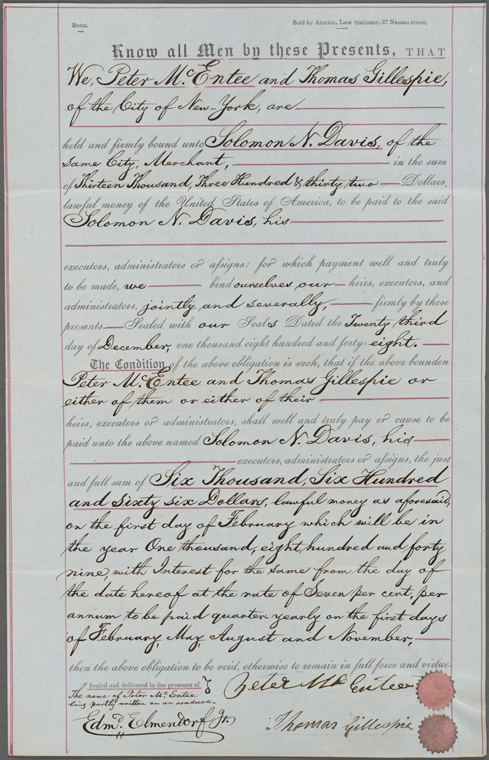 Bond.
Sold by Anstice, Law Stationer, 27 Nassau street,
Know all Men by these Presents, THAT
We, Peter McEntee and Thomas Gillespie,
of the City of New-York, are
held and firmly bound unto Solomon N. Davis, of the
same City, Merchant, in the sum
of Thirteen Thousand, Three Hundred & thirty two Dollars,
lawful money of the United States of America, to be paid to the said
Solomon N. Davis, his
executors, administrators or assigns: for which payment well and truly
to be made, we bind ourselves our heirs, executors, and
administrators, jointly and severally, firmly by these
presents Sealed with our Seals Dated the Twenty third
day of December, one thousand eight hundred and forty-eight.
The Condition of the above obligation is such, that if the above bounden
Peter McEntee and Thomas Gillespie or
either of them or either of their
heirs, executors or administrators, shall well and truly pay or cause to be
paid unto the above named Solomon N. Davis, his
executors, administrators or assigns, the just
and full sum of Six Thousand, Six Hundred
and Sixty six Dollars, lawful money as aforesaid,
on the first day of February which will be in
the year One thousand, eight, hundred and forty
nine, with Interest for the same from the day of
the date hereof at the rate of Seven per cent, per
annum to be paid quarter yearly on the first days
of February, May, August and November,
then the above obligation to be void, otherwise to remain in full force and virtue.
Sealed and delivered in the presence of
The name of Peter McEntee
being partly written on an erasure.
Edmd. Elmendorf Jr.
Peter McEntee
Thomas Gillespie